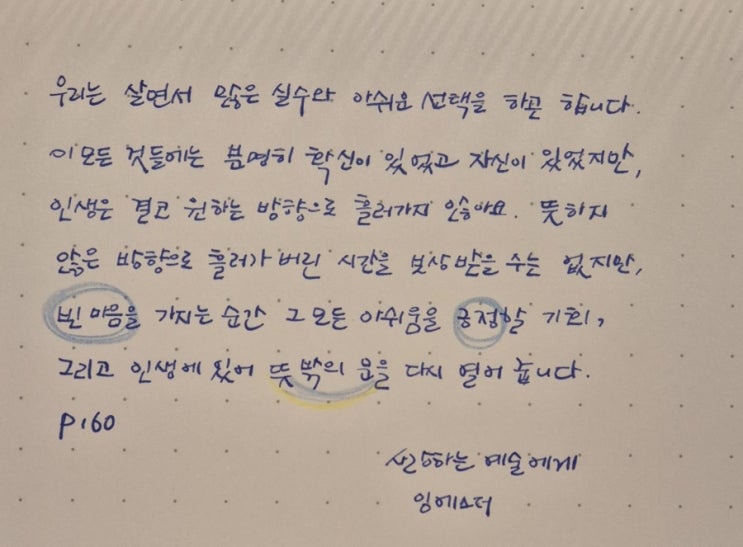 우리는 살면서 많은 실수와 아쉬운 선택을 하곤 합니다.
이 모든 것들에는 분명히 확신이 있었고 자신이 있었지만,
인생은 결코 원하는 방향으로 흘러가지 않아요. 뜻하지
않은 방향으로 흘러가 버린 시간을 보상받을 수는 없지만,
빈 마음을 가지는 순간 그 모든 아쉬움을 긍정할 기회,
그리고 인생에 있어 뜻밖의 문을 다시 열어 줍니다.
P.160
예술에게